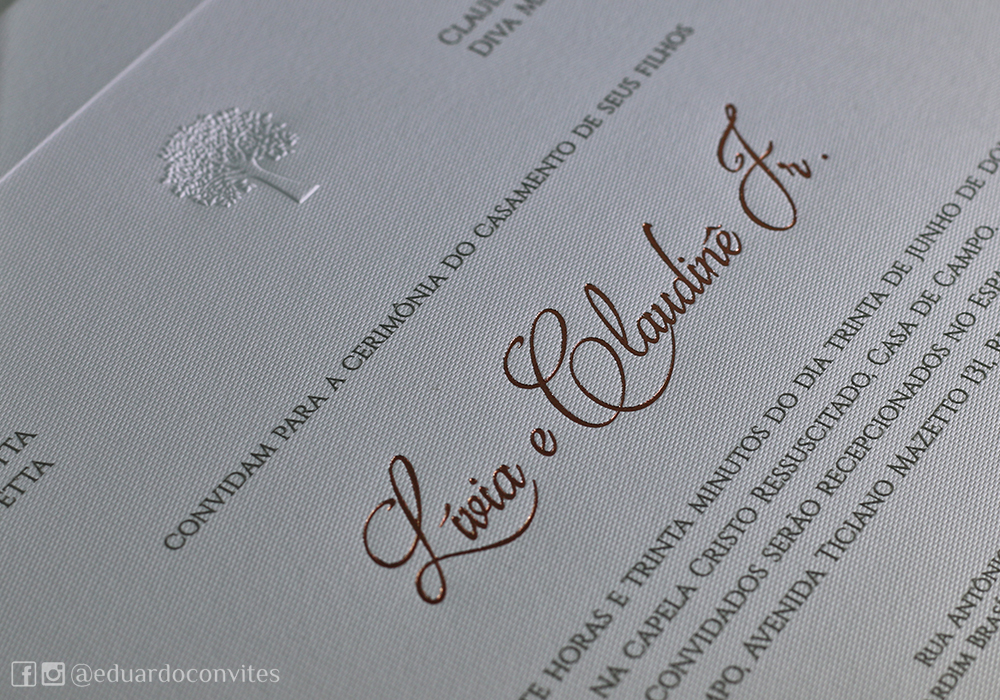 CONVIDAM PARA A CERIMÔNIA DO CASAMENTO DE SEUS FILHOS
Lívia e Claudinê Jr.
HORAS E TRINTA MINUTOS DO DIA TRINTA DE JUNHO DE
NA CAPELA CRISTO RESSUSCITADO, CASA DE CAMPO
CONVIDADOS SERÃO RECEPCIONADOS NO
AVENIDA TICIANO MAZETTO 131,
RUA
@eduardoconvites